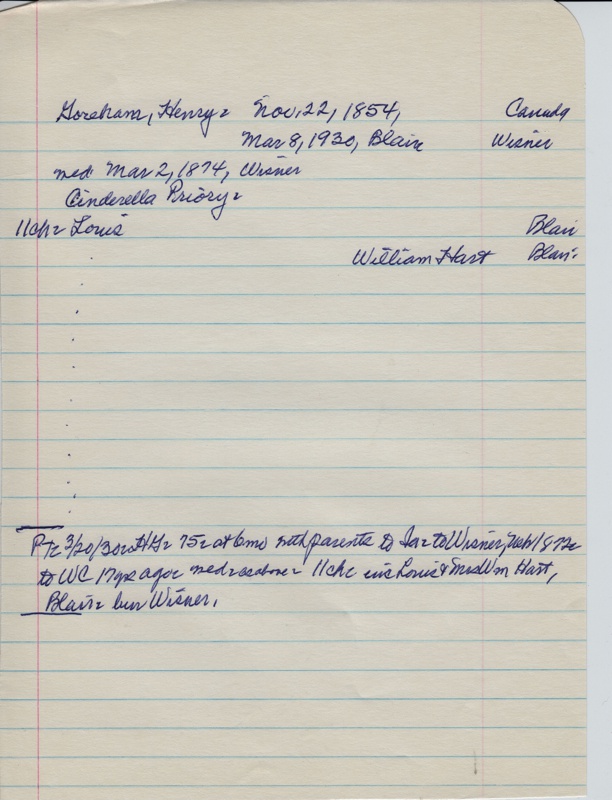 Goreham, Henry= Nov. 22, 1854, Canada
Mar 8, 1930, Blair Wisner
med: Mar 2, 1874, Wisner
Cinderella Priory=
11ch= Louis Blair
William Hart Blair
3/20/30 75= at 6mo with parents to Ia= to Wisner, Neb/1872=
to WC 17yrs ago= med= as above= 11ch= inc Louis & Mrs Wm Hart,
Blair= bur Wisner.